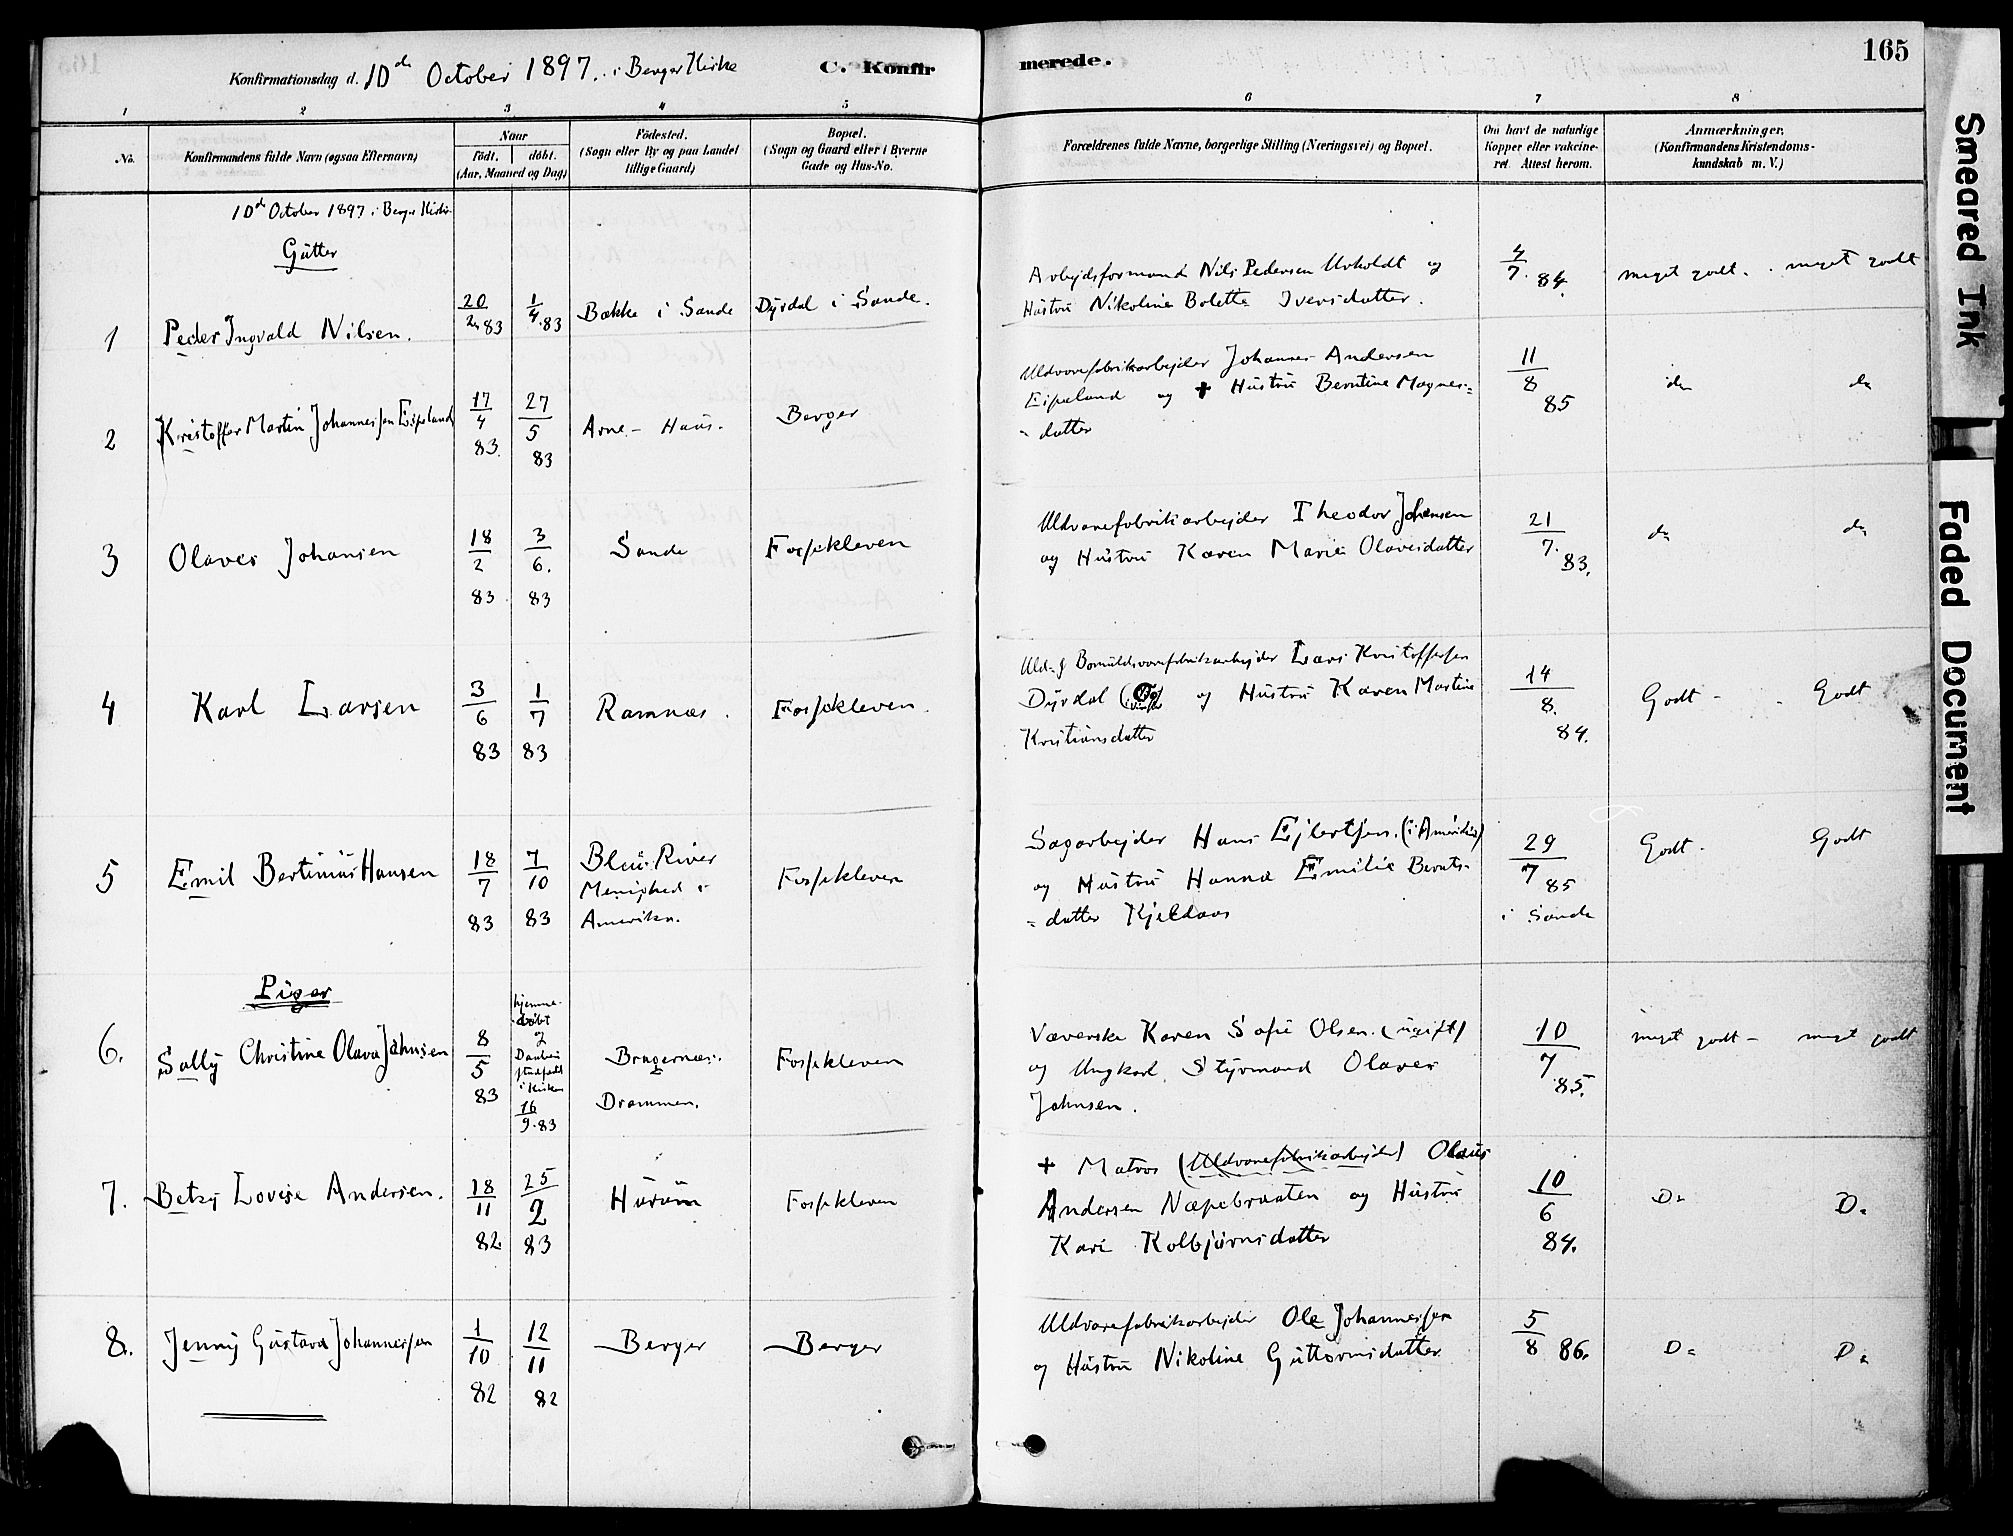 Konfirmationsdag d. 10de October 1897. i Berger Kirke C. Konfirmerede. 165
1 2 3 4 5 6 7 8
No. Konfirmandens fulde Navn (ogsaa Efternavn) Naar født. døbt. (Aar, Maaned og Dag) Födested. (Sogn eller By og paa Landet tillige Gaard) Bopæl. (Sogn og Gaard eller i Byerne Gade og Hus-No. Forældrenes fulde Navne, borgerlige Stilling (Næringsvei) og Bopæl. Om havt de naturlige Kopper eller vakcineret. Attest herom. Anmærkninger. (Konfirmandens Kristendomskundskab m. V.)
10de October 1897 i Berger Kirke
Gutter
1 Peder Ingvald Nilsen. 20/2 83 1/4 83 Bække i Sande Dyrdal i Sande.
Arbejdsformand Nils Pedersen Unholdt og
Hustru Nikoline Bolette Iversdatter.
4/7. 84. meget godt. meget godt
2 Kristoffer Martin Johannessen Eipeland 17/4 83. 27/5 83 Arne - Haus. Berger
Uldvarefabrikarbejder Johannes Andersen
Eipeland og + Hustru Berntine Magnes=
= datter
11/8 85 do do
3 Olaves Johansen 18/2 83 3/6. 83 Sande Fossekleven
Uldvarefabrikarbejder Theodor Johansen
og Hustru Karen Marie Olavesdatter
21/7. 83. do do
4 Karl Larsen 3/6 83 1/7 83 Ramnæs. Fossekleven.
Uld- & Bomuldsvarefabrikarbejder Lars Kristoffersen
Dyrdal og Hustru Karen Martine
Kristiansdatter
14/8. 84. Godt - Godt
5 Emil Bertinius Hansen 18/7 83 7/10 83 Blue River
Menighed i
Amerika. Fossekleven
Sagarbejder Hans Ejlertsen. (i Amerika)
og Hustru Hanna Emilie Bernts-
= datter Kjeldaas
29/7 85
i Sande Godt. Godt
Piger
6. Sally Christine Olava Jahnsen 8/5 83 hjemme-
døbt
og
Daaben
stadfæst
i Kirken
16/9.83 Bragernæs.
Drammen. Fossekleven
Væverske Karen Sofie Olsen. (ugift)
og Ungkarl, Styrmand Olaves
Jahnsen.
10/7 85. meget godt - meget godt
7. Betzy Lovise Andersen. 18/11 82. 25/2 83 Hurum Fossekleven
+ Matros (Uldvarefabrikarbejder) Olaus
Andersen Næpebraaten og Hustru
Kari Kolbjørnsdatter
10/6 84. Do Do
8. Jenny Gustava Johannessen 1/10 82 12/11 82 Berger Berger
Uldvarefabrikarbejder Ole Johannessen
og Hustru Nikoline Guttormsdatter
5/8 86. Do Do
Smeared Ink
Faded Document